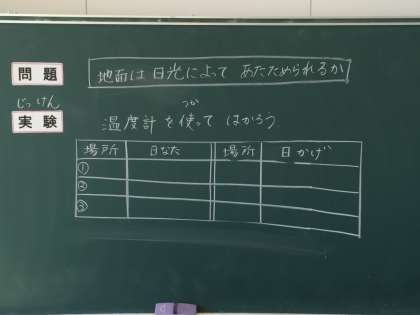 問題
地面は日光によって あたためられるか
じっけん
実験
つか
温度計を使って はかろう.
場所 日なた 場所 日かげ
①
②
③